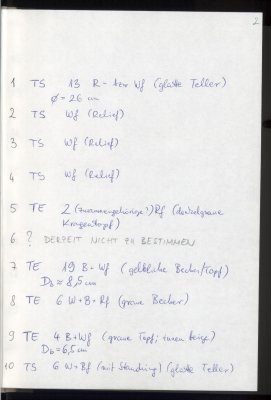 2
1 TS 13 R- bzw Wf (glatte Teller)
Ø = 26 cm
2 TS Wf (Relief)
3 TS Wf (Relief)
4 TS Wf (Relief)
5 TE 2 (zusammengehörige?) Rf (dunkelgraue
Kragentopf)
6 ? DERZEIT NICHT ZU BESTIMMEN
7 TE 19 B+Wf (gelbliche Becher/Topf)
D_b ≈ 8,5 cm
8 TE 6 W+B+Rf (graue Becher)
9 TE 4 B+Wf (graue Topf; innen beige)
D_b = 6,5 cm
10 TS 6 W+Bf (mit Standring) (glatte Teller)